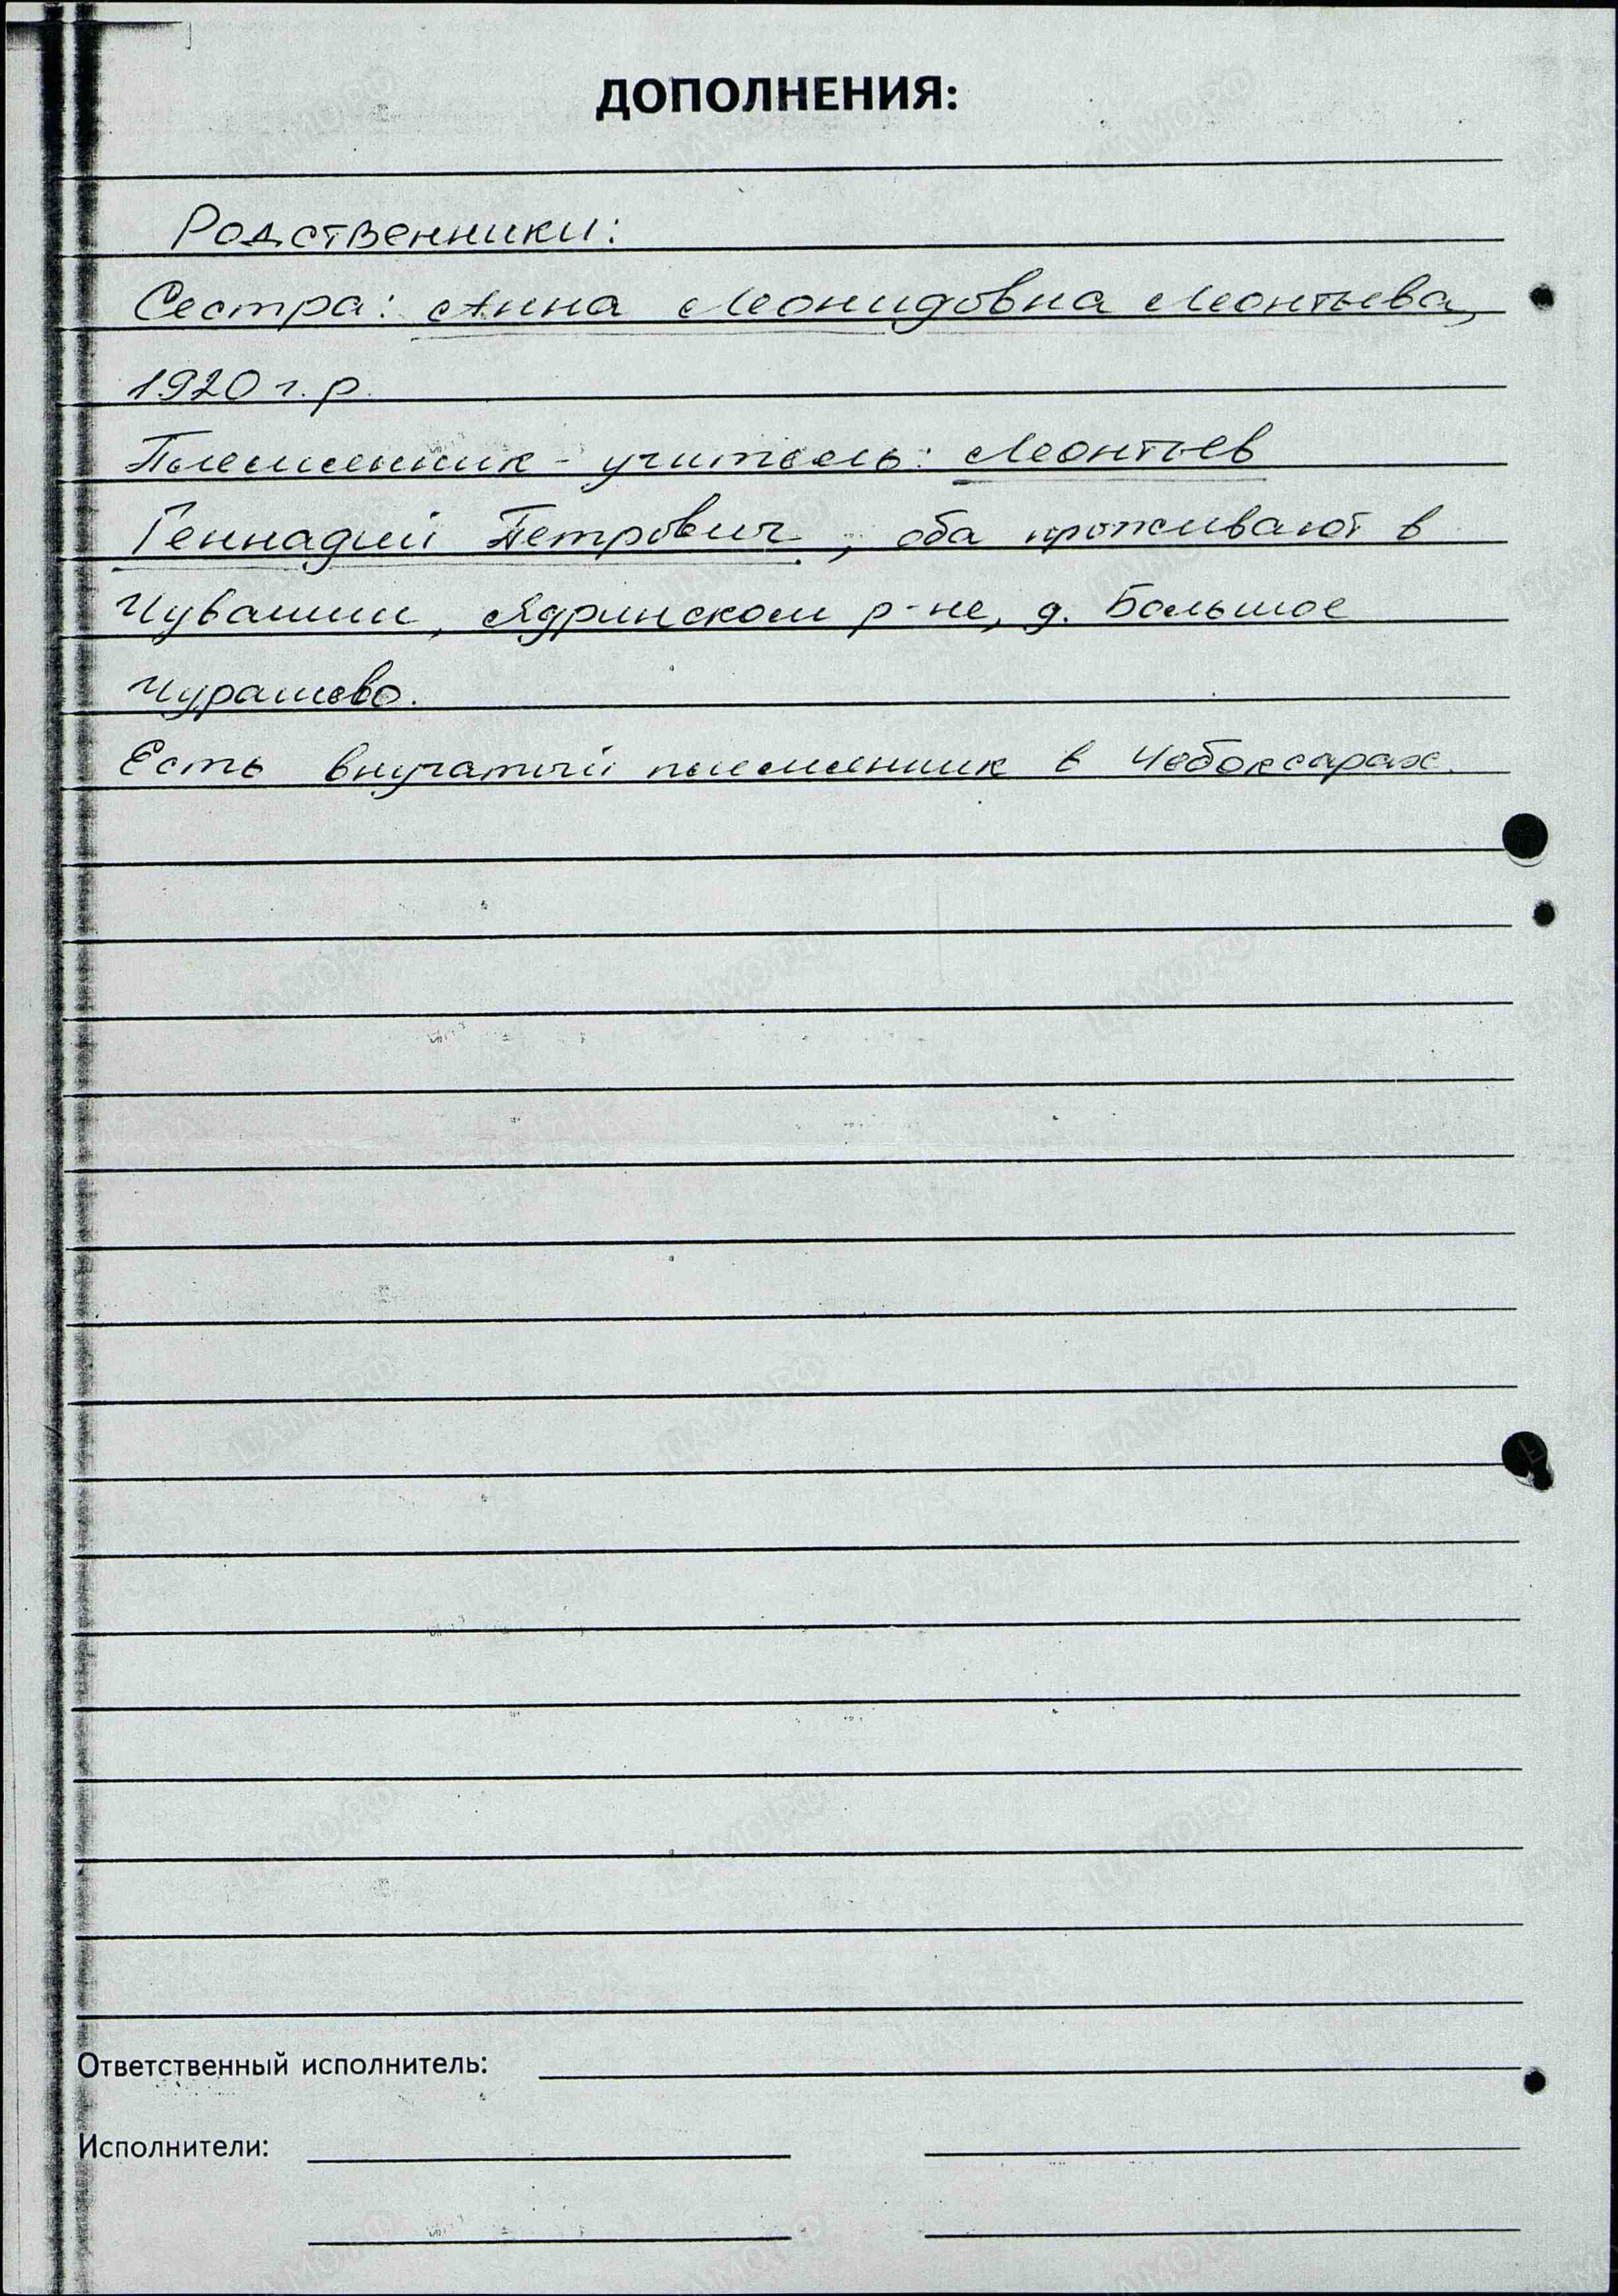 ДОПОЛНЕНИЯ:
Родственники:
Сестра: Анна Леонидовна Леонтьева,
1920 г.р.
Племянник - учитель: Леонтьев
Геннадий Петрович, оба проживают в
Чувашии, Ядринском р-не, д. Большое
Чурашево.
Есть внучатый племянник в Чебоксарах.
Ответственный исполнитель:
Исполнители: